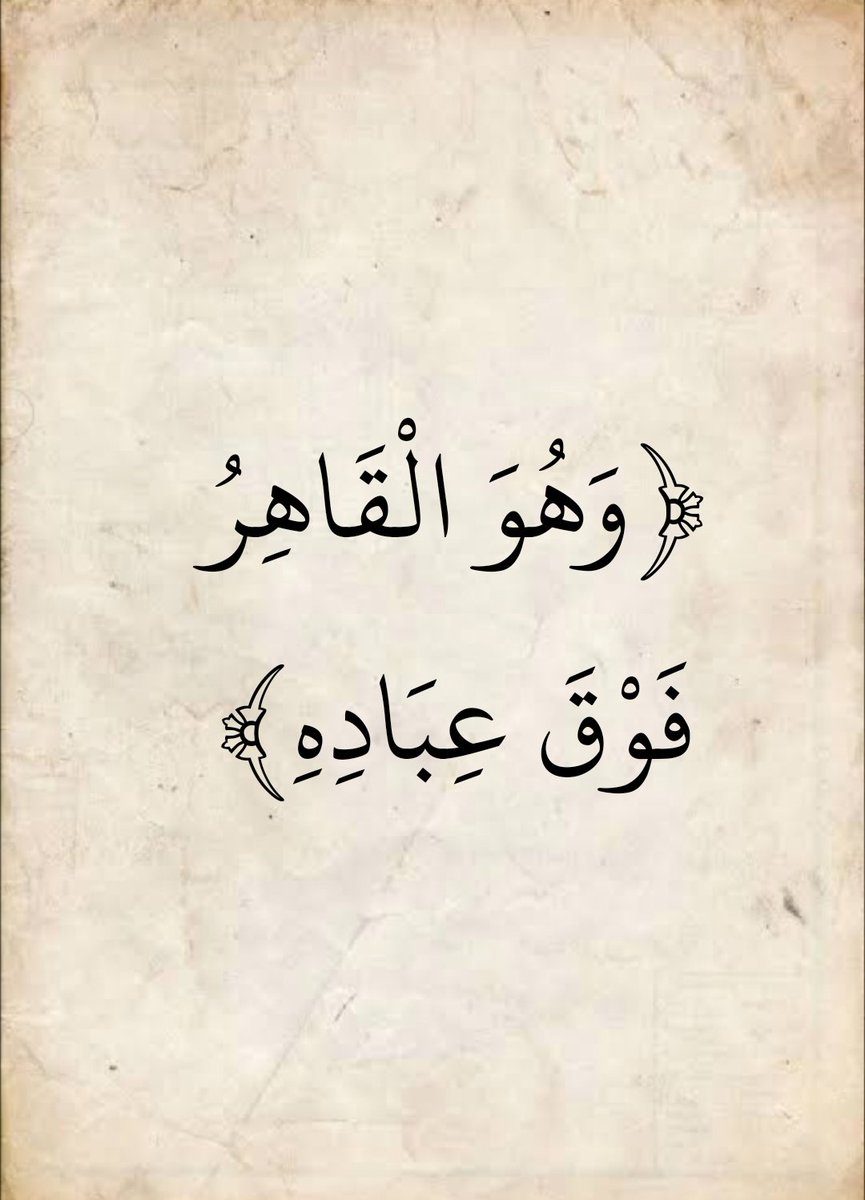 ﴿وَهُوَ الْقَاهِرُ
فَوْقَ عِبَادِهِ﴾